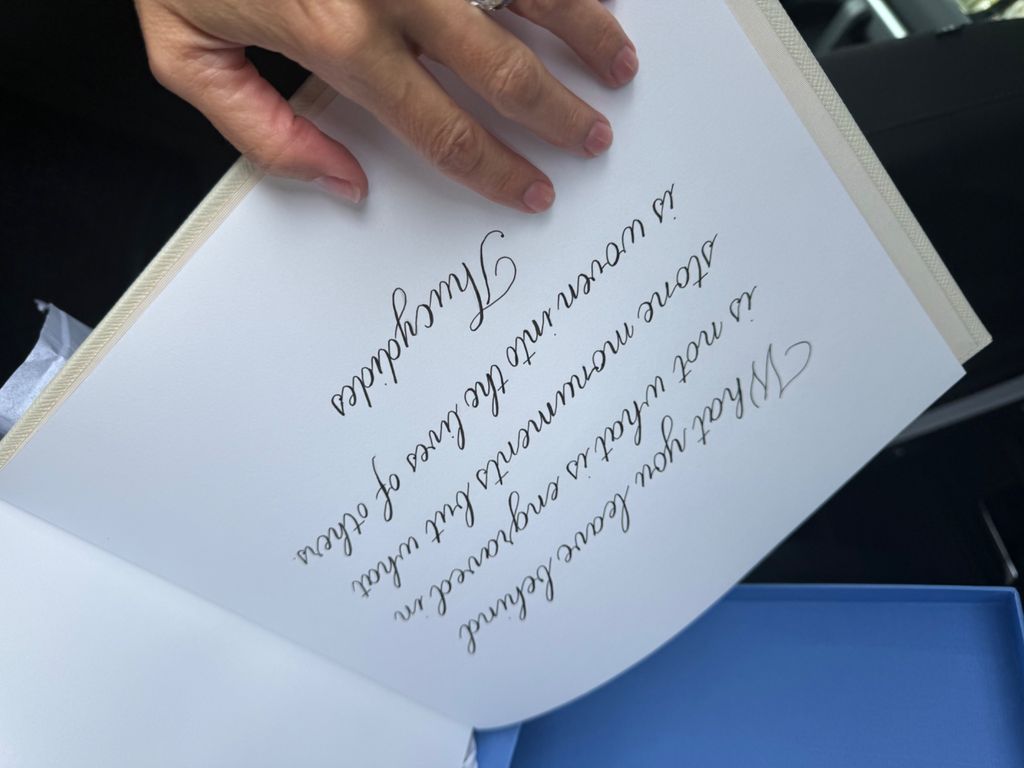 What you leave behind
is not what is engraved in
stone monuments but what
is woven into the lives of others.
Thucydides